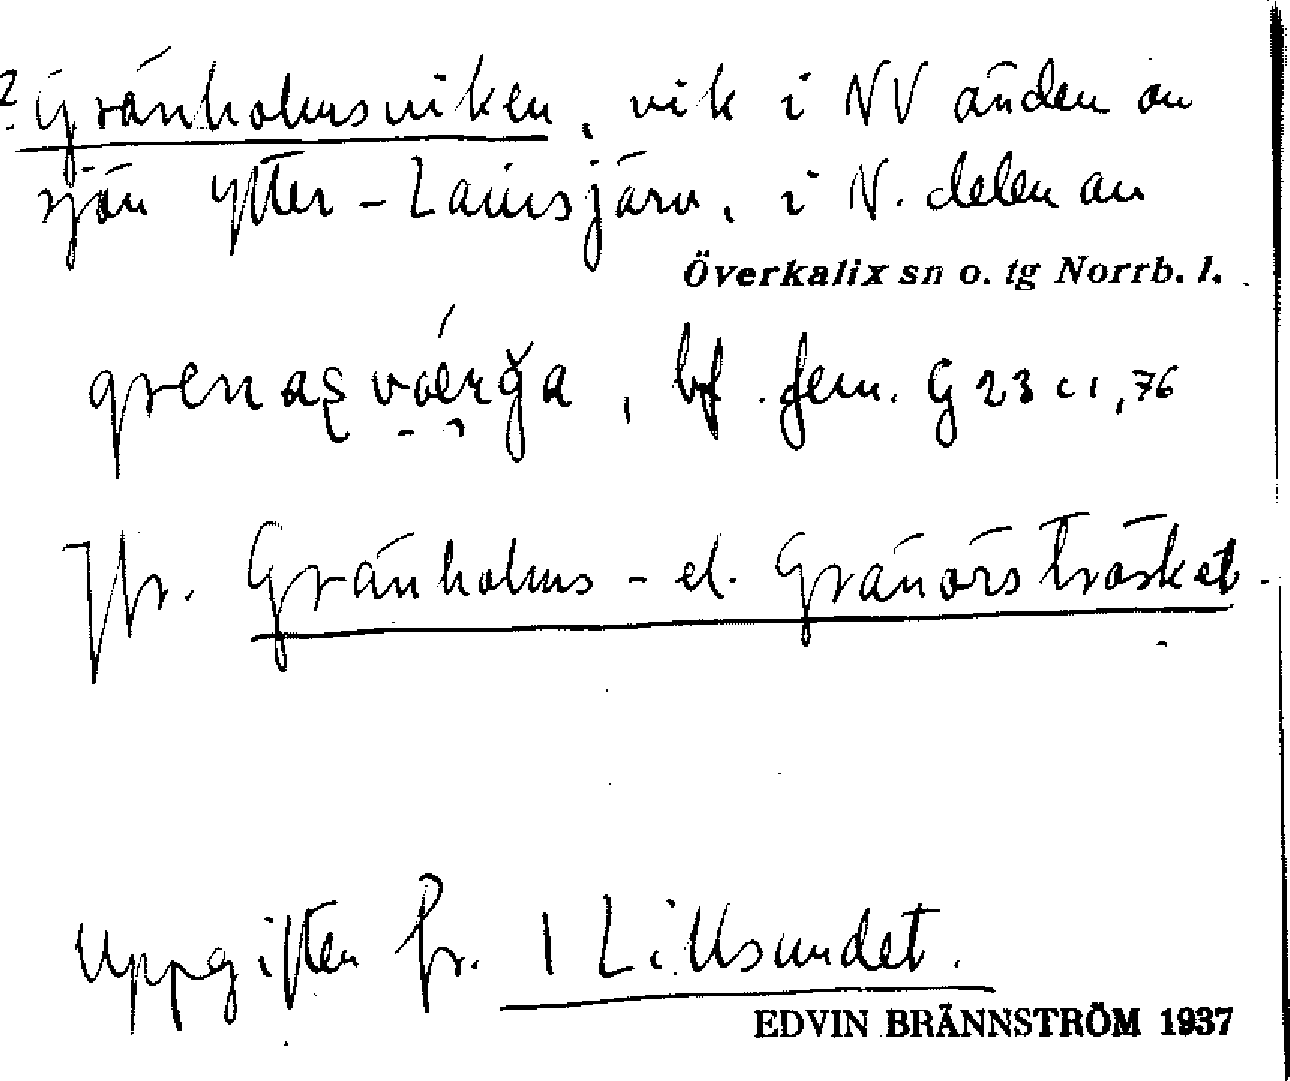 ? Gränholmsviken, vik i NV änden av
sjön Ytter-Lainsjärv, i N. delen av
Överkalix sn o. tg Norrb. l.
bf. fem. G 23 c 1, 76
Jfr. Gränholms- el. Gränörsträsket.
Uppgiften fr. 1 Lillsundet.
EDVIN BRÄNNSTRÖM 1937